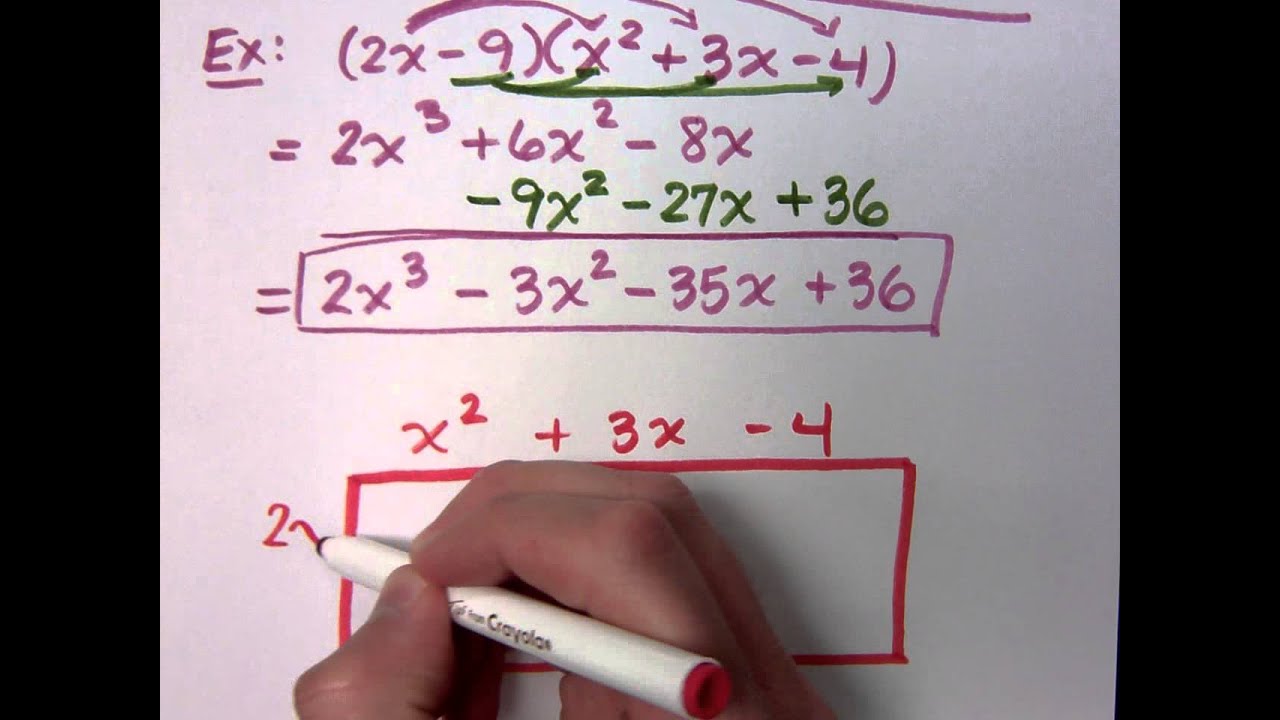 Ex: (2x - 9)(x² + 3x - 4)
= 2x³ + 6x² - 8x
- 9x² - 27x + 36
= 2x³ - 3x² - 35x + 36
x² + 3x - 4
2x
Crayola